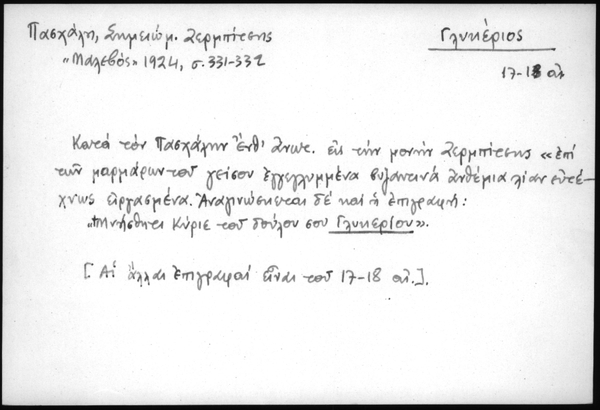 Πασχάλη, Σημειώμ. Ζερμπίτσης
Γλυκέριος
«Μαλεβός» 1924, σ. 331-332
17-18 αἰ.
Κατὰ τὸν Πασχάλην ἔνθ' ἀνωτ. εἰς τὴν μονὴν Ζερμπίτσης «ἐπὶ
τῶν μαρμάρων τοῦ γείσου ἐγγεγλυμμένα βυζαντινὰ ἀνθέμια λίαν εὐτέ-
χνως εἰργασμένα. Ἀναγινώσκεται δὲ καὶ ἡ ἐπιγραφή:
"Μνήσθητι Κύριε τοῦ δούλου σου Γλυκερίου».
[Αἱ ἄλλαι ἐπιγραφαὶ εἶναι τοῦ 17-18 αἰ.].